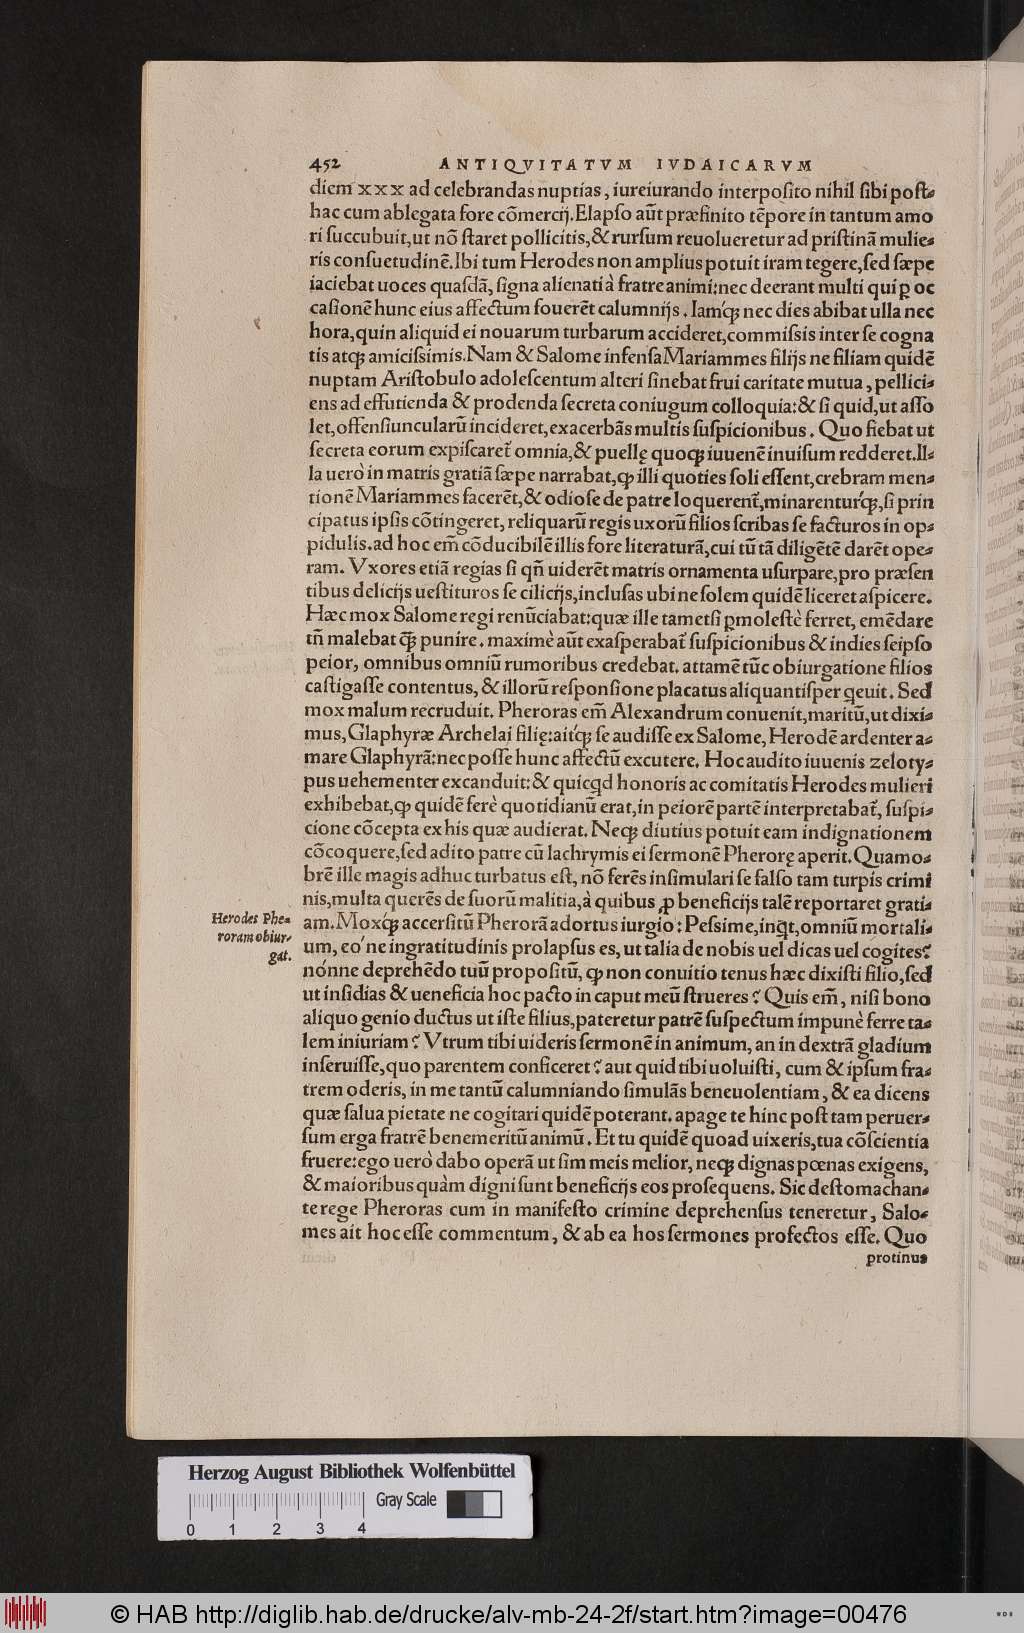 452 ANTIQVITATVM IVDAICARVM
diem xxx ad celebrandas nuptias, iureiurando interposito nihil sibi post-
hac cum ablegata fore cōmercij. Elapso aūt præfinito tēpore in tantum amo
ri succubuit, ut nō staret pollicitis, & rursum reuolueretur ad pristinā mulie-
ris consuetudinē. Ibi tum Herodes non amplius potuit iram tegere, sed sæpe
iaciebat uoces quasdā, signa alienati à fratre animi: nec deerant multi qui ꝑ oc
casionē hunc eius affectum fouerēt calumnijs. Iamq́ꝫ nec dies abibat ulla nec
hora, quin aliquid ei nouarum turbarum accideret, commissis inter se cogna
tis atqꝫ amicissimis. Nam & Salome infensa Mariammes filijs ne filiam quidē
nuptam Aristobulo adolescentum alteri sinebat frui caritate mutua, pellici-
ens ad effutienda & prodenda secreta coniugum colloquia: & si quid, ut asso
let, offensiuncularū incideret, exacerbās multis suspicionibus. Quo fiebat ut
secreta eorum expiscaret̃ omnia, & puellę quoqꝫ iuuenē inuisum redderet. Il-
la uerò in matris gratiā sæpe narrabat, ꝙ illi quoties soli essent, crebram men-
tionē Mariammes facerēt, & odiose de patre loquerent̃, minarenturq́ꝫ, si prin
cipatus ipsis cōtingeret, reliquarū regis uxorū filios scribas se facturos in op-
pidulis. ad hoc em̄ cōducibilē illis fore literaturā, cui tū tā diligētē darēt ope-
ram. Vxores etiā regias si qñ uiderēt matris ornamenta usurpare, pro præsen
tibus delicijs uestituros se cilicijs, inclusas ubi ne solem quidē liceret aspicere.
Hæc mox Salome regi renūciabat: quæ ille tametsi ꝑmolestè ferret, emēdare
tñ malebat q̄ꝫ punire. maximè aūt exasperabat̃ suspicionibus & indies seipso
peior, omnibus omniū rumoribus credebat. attamē tūc obiurgatione filios
castigasse contentus, & illorū responsione placatus aliquantisper q̇euit. Sed
mox malum recruduit. Pheroras em̄ Alexandrum conuenit, maritū, ut dixi-
mus, Glaphyræ Archelai filię: aitq́ꝫ se audisse ex Salome, Herodē ardenter a-
mare Glaphyrā: nec posse hunc affectū excutere. Hoc audito iuuenis zeloty-
pus uehementer excanduit: & quicq̇d honoris ac comitatis Herodes mulieri
exhibebat, ꝙ quidē ferè quotidianū erat, in peiorē partē interpretabat̃, suspi-
cione cōcepta ex his quæ audierat. Neqꝫ diutius potuit eam indignationem
cōcoquere, sed adito patre cū lachrymis ei sermonē Pherorę aperit. Quamo-
brē ille magis adhuc turbatus est, nō ferēs insimulari se falso tam turpis crimi
nis, multa querēs de suorū malitia, à quibus ꝓ beneficijs talē reportaret grati-
am. Moxq́ꝫ accersitū Pherorā adortus iurgio: Pessime, inq̇t, omniū mortali-
um, eo ́ne ingratitudinis prolapsus es, ut talia de nobis uel dicas uel cogites?
nónne deprehēdo tuū propositū, ꝙ non conuitio tenus hæc dixisti filio, sed
ut insidias & ueneficia hoc pacto in caput meū strueres? Quis em̄, nisi bono
aliquo genio ductus ut iste filius, pateretur patrē suspectum impunè ferre ta-
lem iniuriam? Vtrum tibi uideris sermonē in animum, an in dextrā gladium
inseruisse, quo parentem conficeret? aut quid tibi uoluisti, cum & ipsum fra-
trem oderis, in me tantū calumniando simulās beneuolentiam, & ea dicens
quæ salua pietate ne cogitari quidē poterant. apage te hinc post tam peruer-
sum erga fratrē benemeritū animū. Et tu quidē quoad uixeris, tua cōscientia
fruere: ego uerò dabo operā ut sim meis melior, neqꝫ dignas pœnas exigens,
& maioribus quàm digni sunt beneficijs eos prosequens. Sic destomachan-
te rege Pheroras cum in manifesto crimine deprehensus teneretur, Salo-
mes ait hoc esse commentum, & ab ea hos sermones profectos esse. Quo
protinus
Herodes Phe-
roram obiur-
gat.
Herzog August Bibliothek Wolfenbüttel
Gray Scale
0 1 2 3 4
© HAB http://diglib.hab.de/drucke/alv-mb-24-2f/start.htm?image=00476